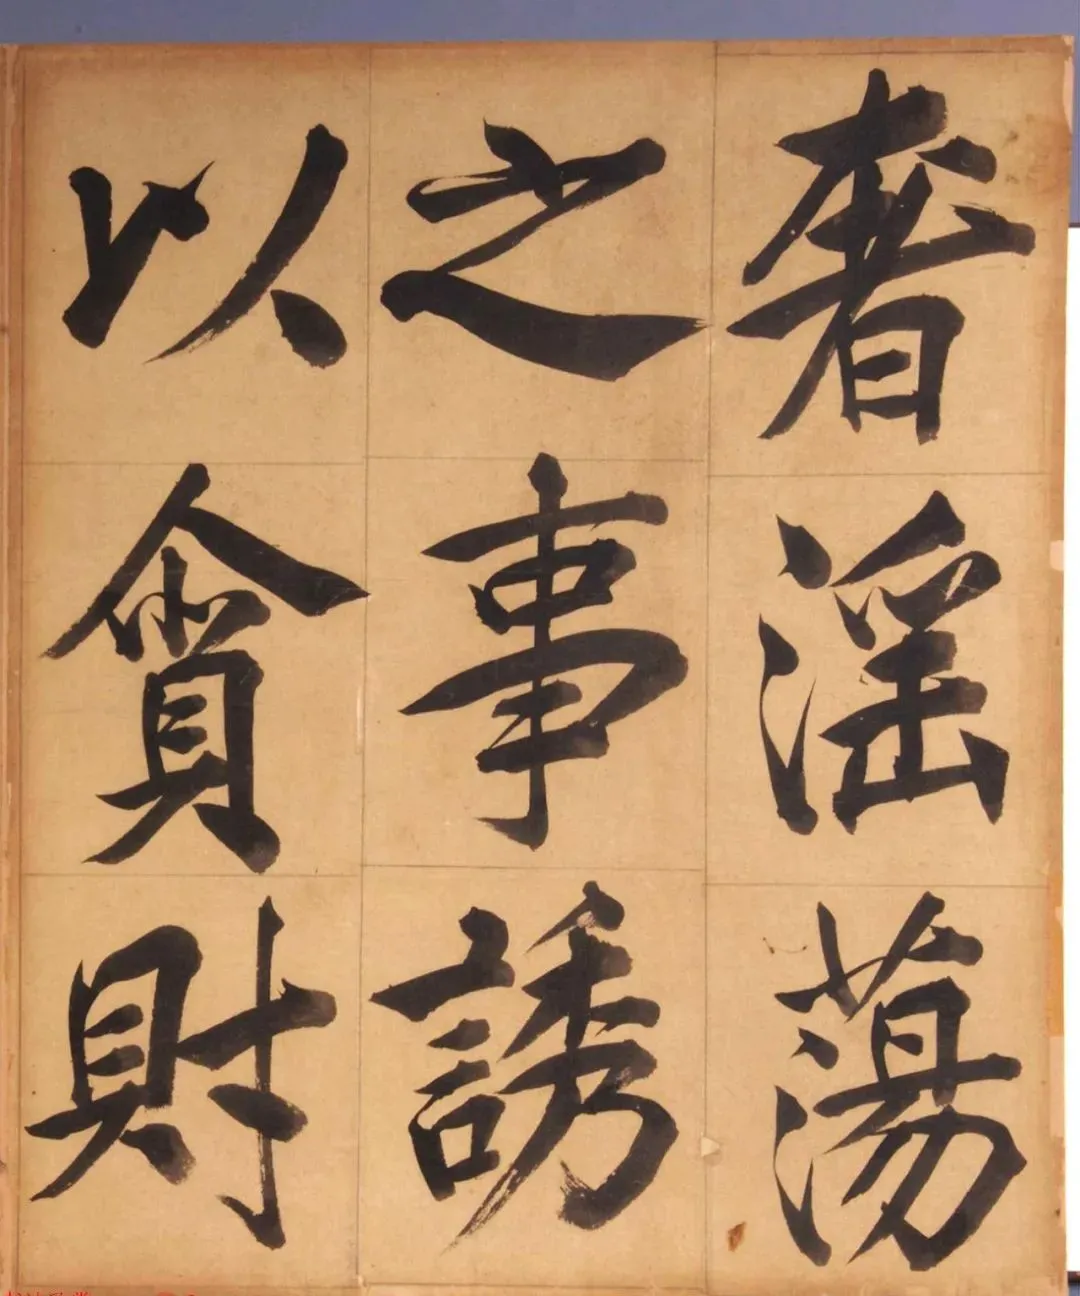 奢淫蕩
之事誘
以貪財